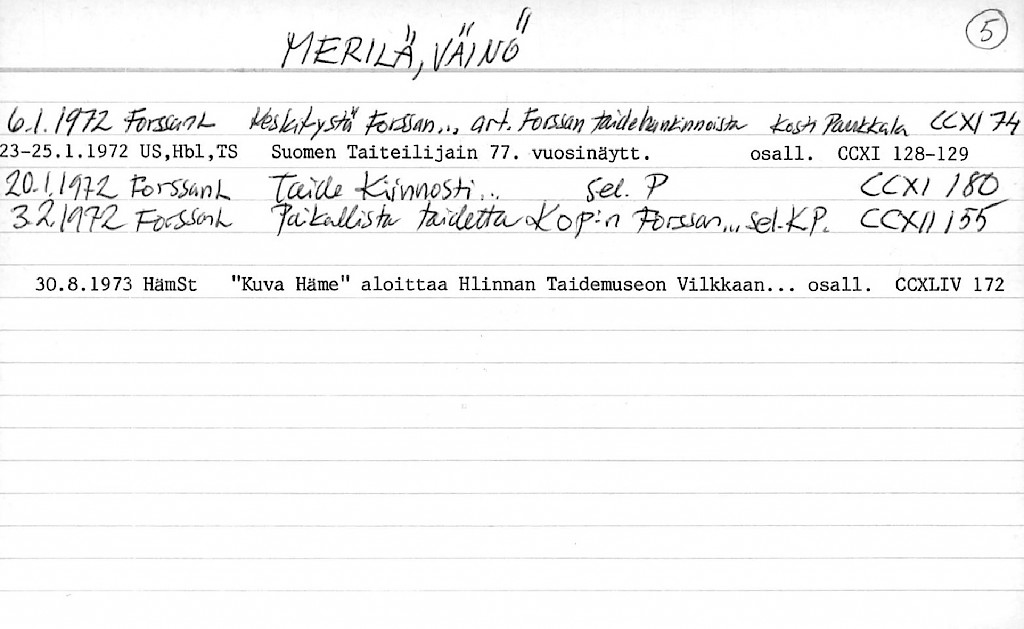 5
MERILÄ, VÄINÖ
6.1.1972 ForssanL Keskitystä Forssan... art. Forssan taidehankinnoista Kosti Paukkala CCXI 74
23-25.1.1972 US,Hbl,TS Suomen Taiteilijain 77. vuosinäytt. osall. CCXI 128-129
20.1.1972 ForssanL Taide kiinnosti... sel. P CCXI 180
3.2.1972 ForssanL Paikallista taidetta KOP:n Forssan... sel. KP. CCXII 155
30.8.1973 HämSt "Kuva Häme" aloittaa Hlinnan Taidemuseon Vilkkaan... osall. CCXLIV 172